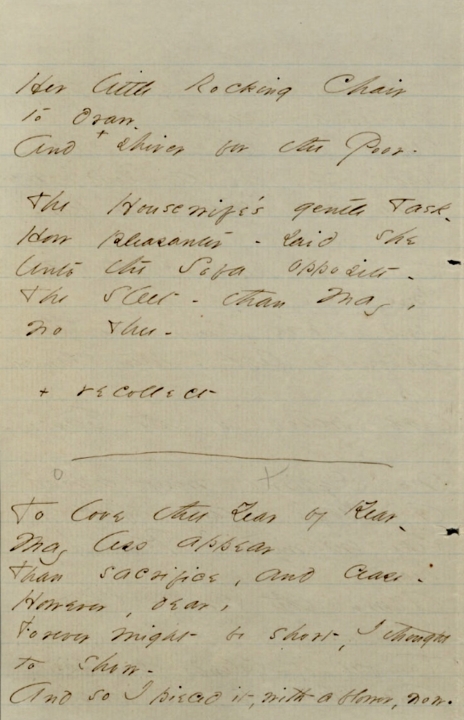 Her little Rocking Chair
to draw.
And + shiver for the Poor.
The Housewife's gentle Task.
How pleasanter - said she
Unto the Sofa opposite -
The Sleet - than May,
no Thee -
+ recollect
To love thee Year by Year -
May less appear
Than sacrifice, and cease -
However, dear,
Forever might be short, I thought
to show -
And so I pieced it, with a flower, now.